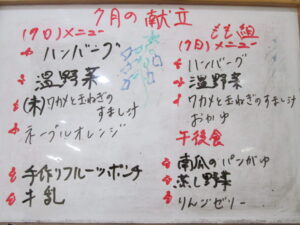 7月の献立
(7日)メニュー
ハンバーグ
温野菜
(未)ワカメと玉ねぎのすまし汁
ネーブルオレンジ
手作りフルーツポンチ
牛乳
もも組
(7日)メニュー
ハンバーグ
温野菜
ワカメと玉ねぎのすまし汁
おかゆ
午後食
南瓜のパンがゆ
蒸し野菜
りんごゼリー